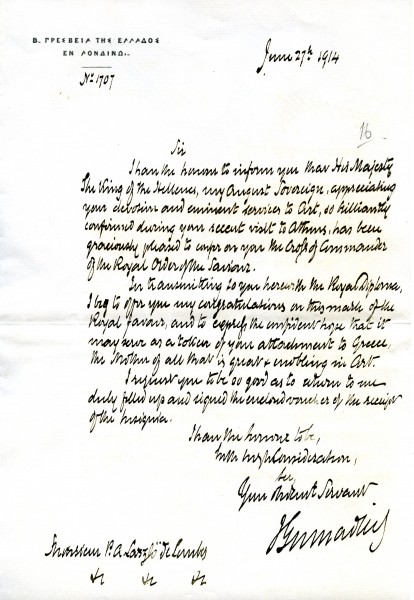 Β. ΠΡΕΣΒΕΙΑ ΤΗΣ ΕΛΛΑΔΟΣ
ΕΝ ΛΟΝΔΙΝΩ.
No 1707
June 27th 1914
16
Sir
I have the honour to inform you that His Majesty
The King of the Hellenes, my August Sovereign, appreciating
your devotion and eminent services to Art, so brilliantly
confirmed during your recent visit to Athens, has been
graciously pleased to confer on you the Cross of Commander
of the Royal Order of the Saviour.
In transmitting to you herewith the Royal Diploma,
I beg to offer you my congratulations on this mark of the
Royal favour, and to express the confident hope that it
may serve as a token of your attachment to Greece,
the Mother of all that is great & ennobling in Art.
I request you to be so good as to return to me
duly filled up and signed the enclosed voucher of the receipt
of the Insignia.
I have the honour to be,
with high Consideration,
Your Obedient Servant
J Gennadius
Monsieur P. A. László de Lombos
&c &c &c